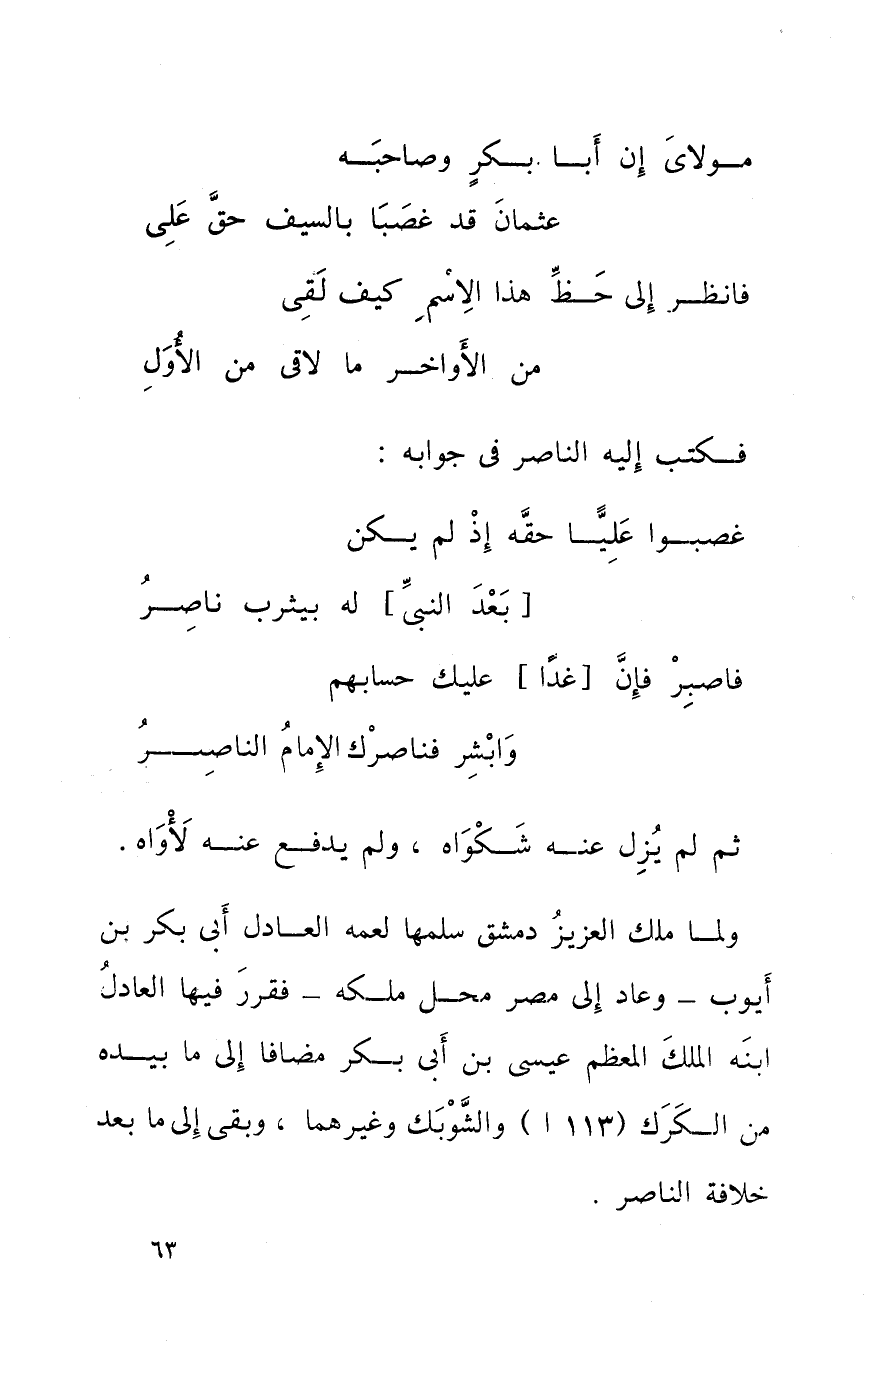 مـولاىَ إن أَبـا بـكرٍ وصاحبَـه
عثمانَ قد غصَبَا بالسيف حقَّ عَلِى
فانظـر إلى حَـظِّ هذا الِاسْمِ كيف لَقِى
من الأَواخـر ما لاقى من الأُوَلِ
فـكتب إليه الناصر فى جوابه :
غصبـوا عَلِيًّـا حقَّه إذْ لم يـكن
[ بَعْدَ النبىِّ ] له بيثرب ناصِـرُ
فاصبِرْ فإنَّ [ غدًا ] عليك حسابهم
وَابْشِر فناصرْك الإمامُ الناصِـرُ
ثم لم يُزِل عنـه شَـكْوَاه ، ولم يدفـع عنـه لَأْوَاه .
ولمـا ملك العزيزُ دمشق سلمها لعمه العـادل أَبى بكر بن
أَيوب – وعاد إلى مصر محـل ملـكه – فقررَ فيها العادلُ
ابنَه الملكَ المعظم عيسى بن أَبى بـكر مضافا إلى ما بيـده
من الـكَرَك (١١٣ ا ) والشَّوْبَك وغيرهما ، وبقى إلى ما بعد
خلافة الناصر .
٦٣